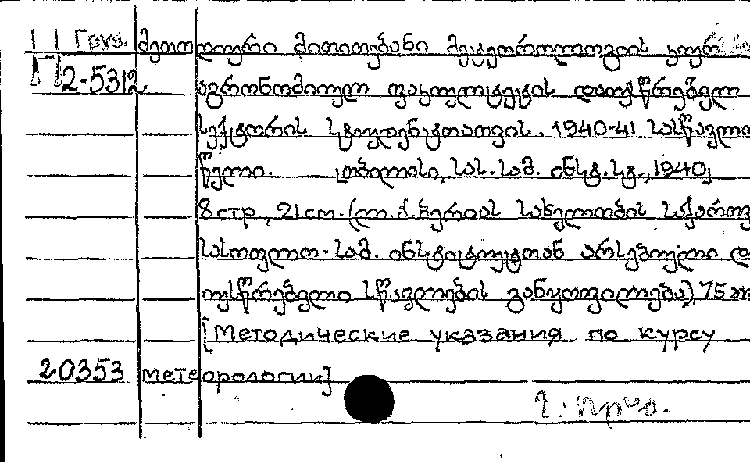 Груз. მეთოდური მითითებანი მეტეოროლოგიის კურ
П2-5312 აგრონომიულ ფაკულტეტის დაუსწრებელ
სექტორის სტუდენტთათვის. 1940-41 სასწავლო
წელი. თბილისი, სას.-სამ. ინსტ. სტ., 1940,
8 стр., 21 см. (ლ. პ. ბერიას სახელობის საქართვ
სასოფლო-სამ. ინსტიტუტთან არსებული და
უსწრებელი სწავლების განყოფილება), 75
[Методические указания по курсу
20353 метеорологии]